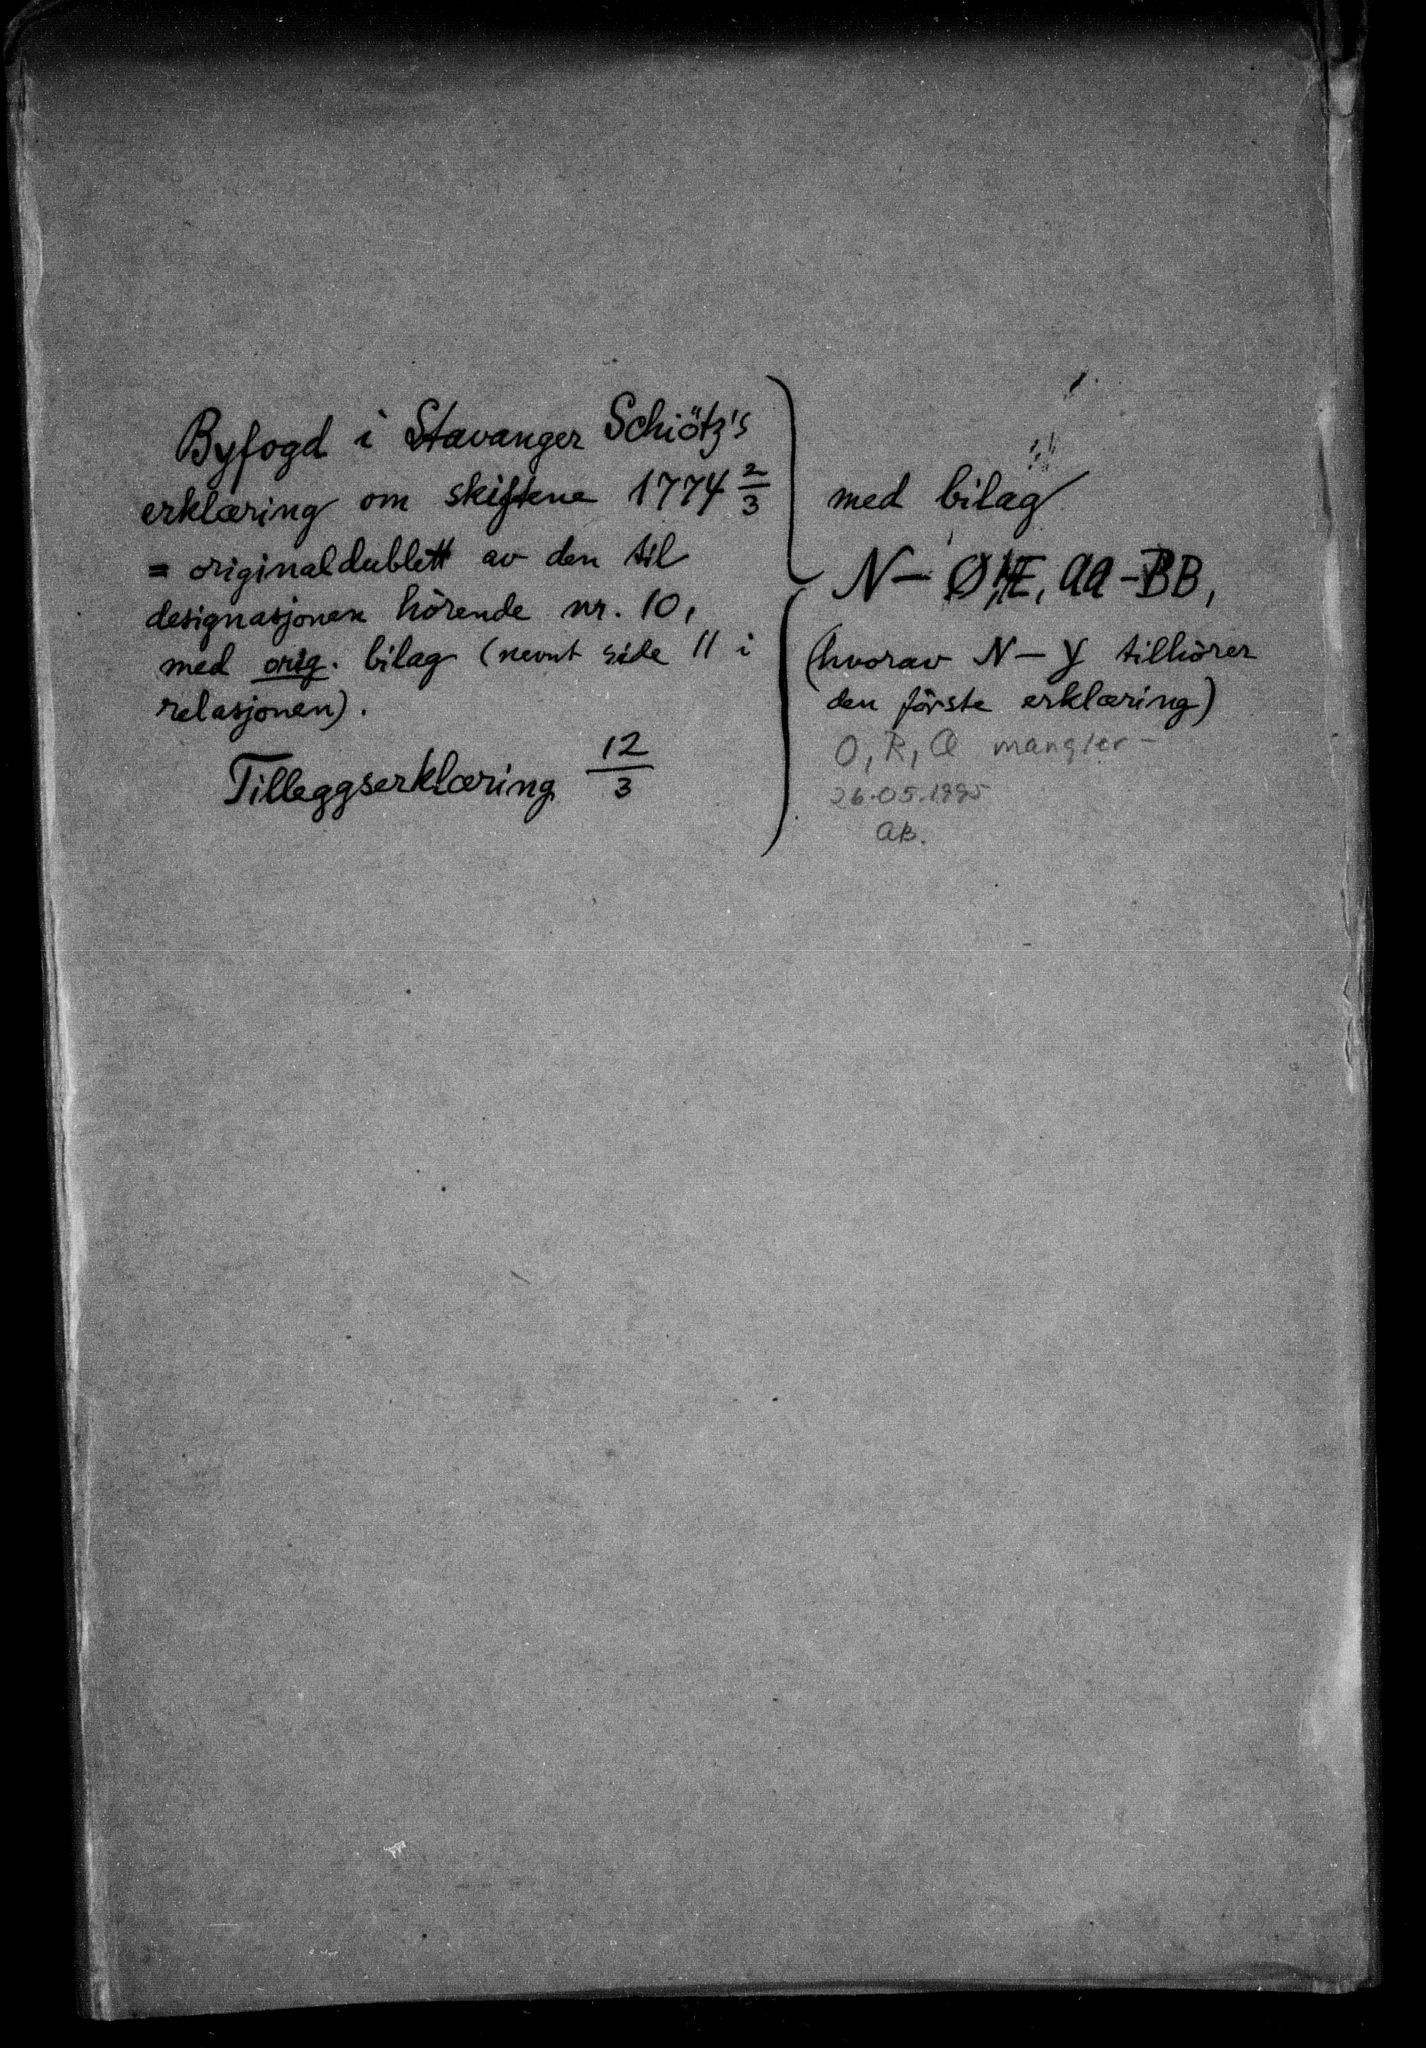 Byfogd i Stavanger Schiötz's
erklæring om skiftene 1774 2/3
= originaldublett av den til
designasjonen hörende nr. 10,
med orig. bilag (nevnt side 11 i
relasjonen).
Tilleggserklæring 12/3
med bilag
N – Ø, Æ, AA – BB,
(hvorav N – Y tilhörer
den förste erklæring)
O, R, Q mangler –
26.05.1995
AB.